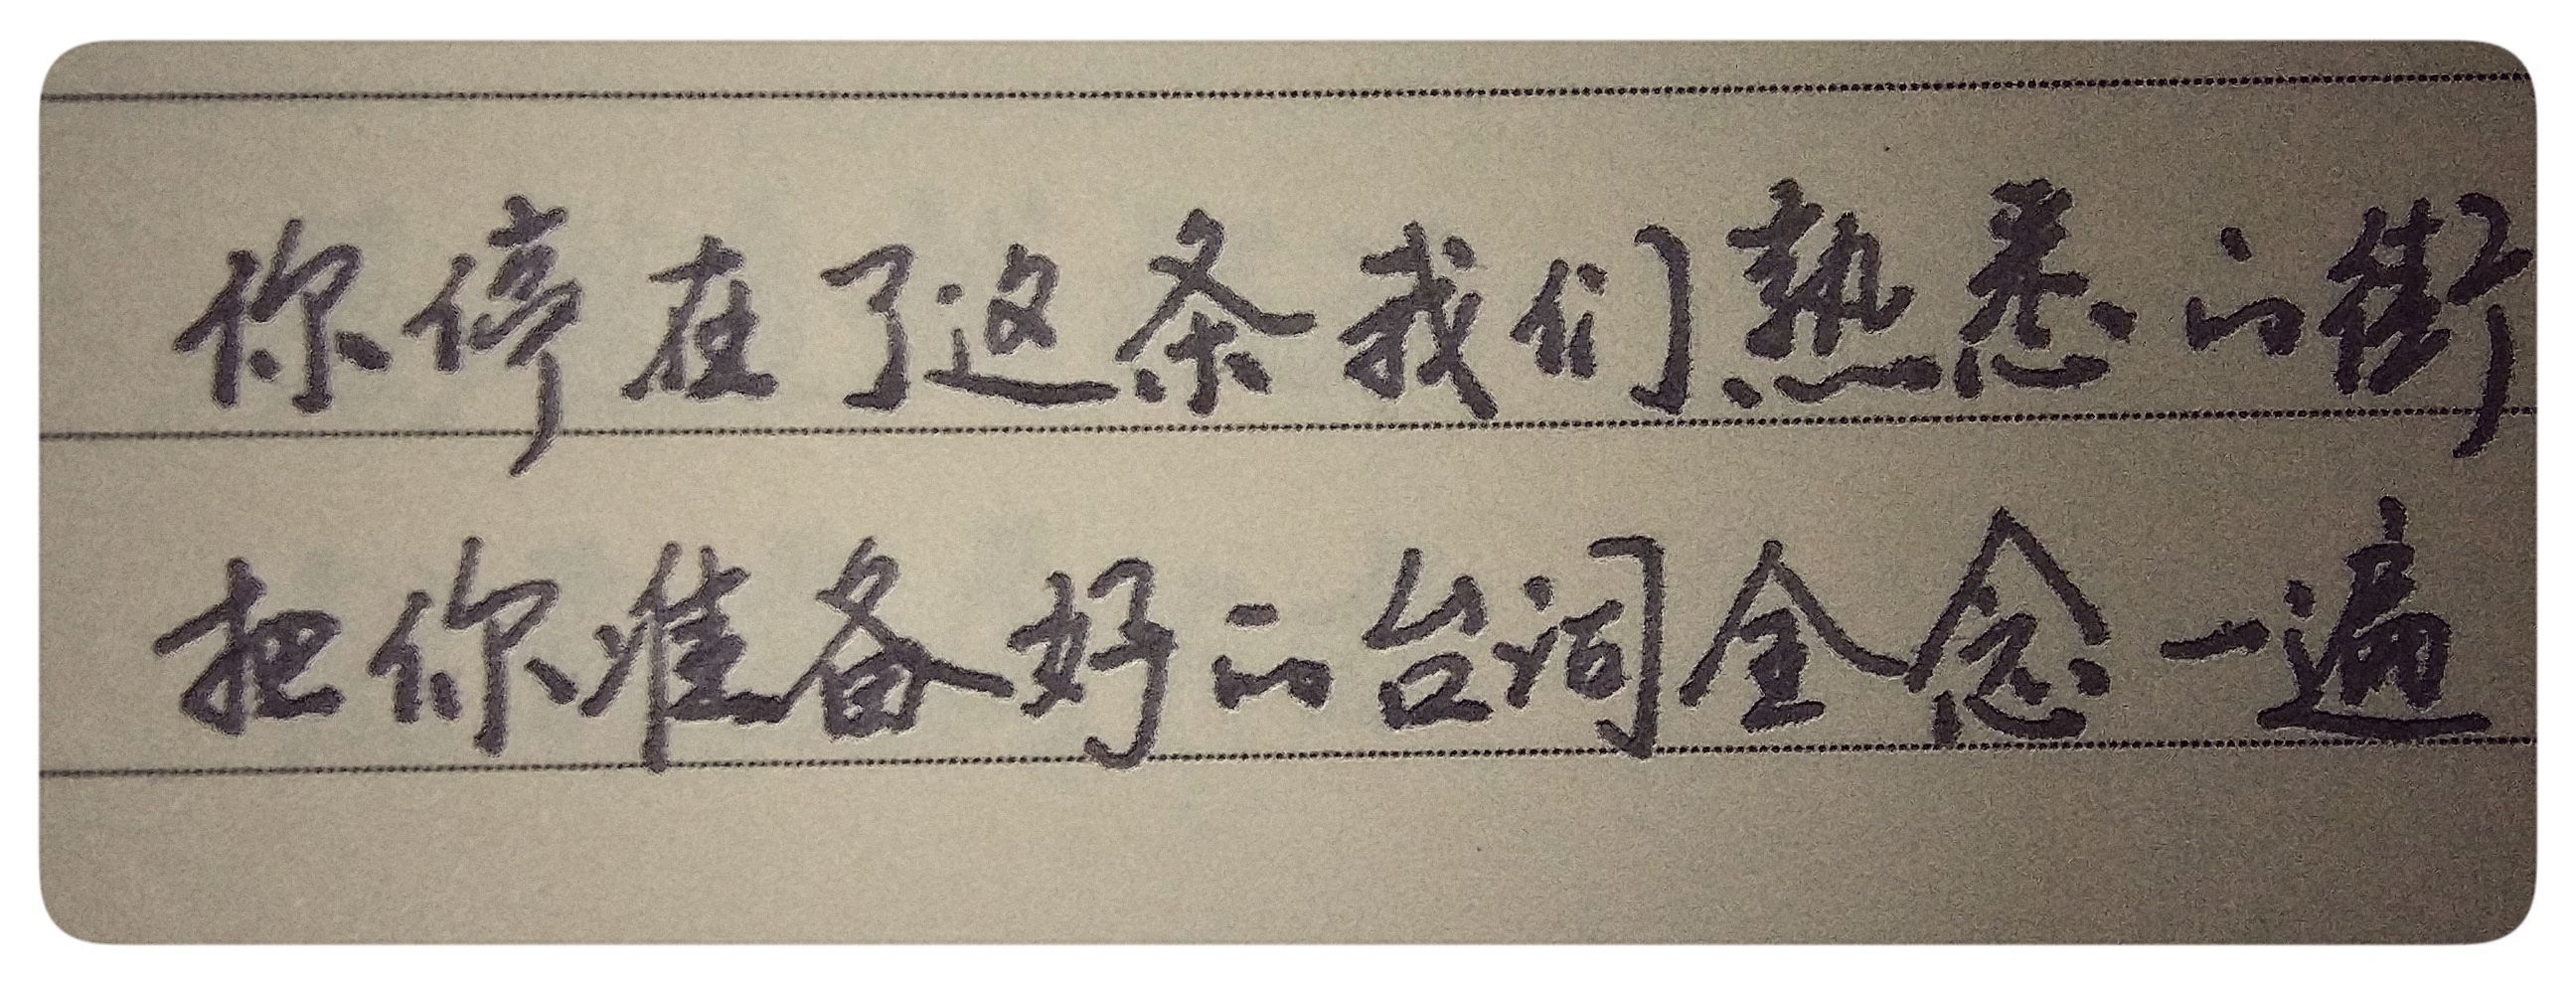 你停在了这条我们熟悉的街
把你准备好的台词全念一遍